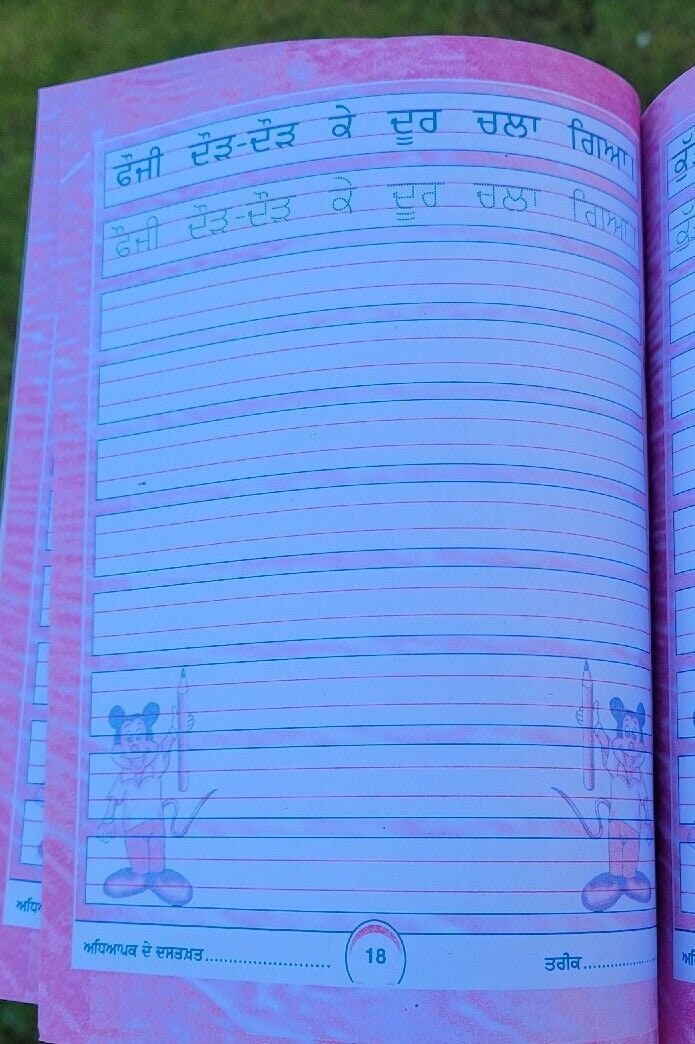 ਫੌਜੀ ਦੌੜ-ਦੌੜ ਕੇ ਦੂਰ ਚਲਾ ਗਿਆ।
ਫੌਜੀ ਦੌੜ-ਦੌੜ ਕੇ ਦੂਰ ਚਲਾ ਗਿਆ।
ਅਧਿਆਪਕ ਦੇ ਦਸਤਖ਼ਤ............................ 18 ਤਰੀਕ................